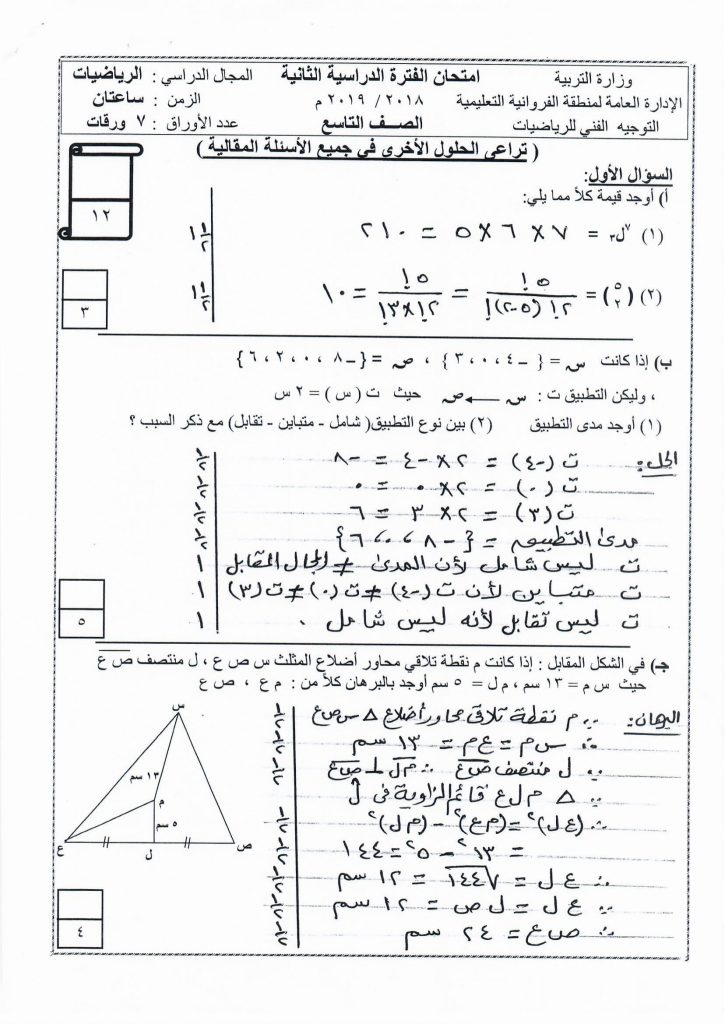 وزارة التربية
الإدارة العامة لمنطقة الفروانية التعليمية
التوجيه الفني للرياضيات
امتحان الفترة الدراسية الثانية
٢٠١٨ / ٢٠١٩ م
الصف التاسع
المجال الدراسي : الرياضيات
الزمن : ساعتان
عدد الأوراق : ٧ ورقات
( تراعى الحلول الأخرى في جميع الأسئلة المقالية )
١٢
السؤال الأول:
أ) أوجد قيمة كلاً مما يلي:
(١) ٧ل٣ = ٧ × ٦ × ٥ = ٢١٠
(٢) (٥ ٢) = ٥! / ٢! (٥-٢)! = ٥! / ٢! × ٣! = ١٠
٣
ب) إذا كانت س = { -٤ ، ٠ ، ٣ } ، ص = { -٨ ، ٠ ، ٢ ، ٦ }
، وليكن التطبيق ت : س ← ص حيث ت ( س ) = ٢ س
(١) أوجد مدى التطبيق (٢) بين نوع التطبيق( شامل - متباين - تقابل) مع ذكر السبب ؟
الحل: ت (-٤) = ٢ × -٤ = -٨
ت (٠) = ٢ × ٠ = ٠
ت (٣) = ٢ × ٣ = ٦
مدى التطبيق = { -٨ ، ٠ ، ٦ }
ت ليس شامل لأن المدى ≠ المجال المقابل ١
ت متباين لأن ت (-٤) ≠ ت (٠) ≠ ت (٣) ١
ت ليس تقابل لأنه ليس شامل . ١
٥
جـ) في الشكل المقابل : إذا كانت م نقطة تلاقي محاور أضلاع المثلث س ص ع ، ل منتصف ص ع
حيث س م = ١٣ سم ، م ل = ٥ سم أوجد بالبرهان كلاً من : م ع ، ص ع
البرهان: ∵ م نقطة تلاقي محاور أضلاع △ س ص ع
∴ س م = ع م = ١٣ سم
∵ ل منتصف ص ع ∴ م ل ⊥ ص ع
∵ △ م ل ع قائم الزاوية في ل
∴ (ع ل)٢ = (م ع)٢ - (م ل)٢
= ١٣٢ - ٥٢ = ١٤٤
∴ ع ل = √١٤٤ = ١٢ سم
∵ ع ل = ل ص = ١٢ سم
∴ ص ع = ٢٤ سم
س
١٣ سم
م
٥ سم
ع
ل
ص
٤